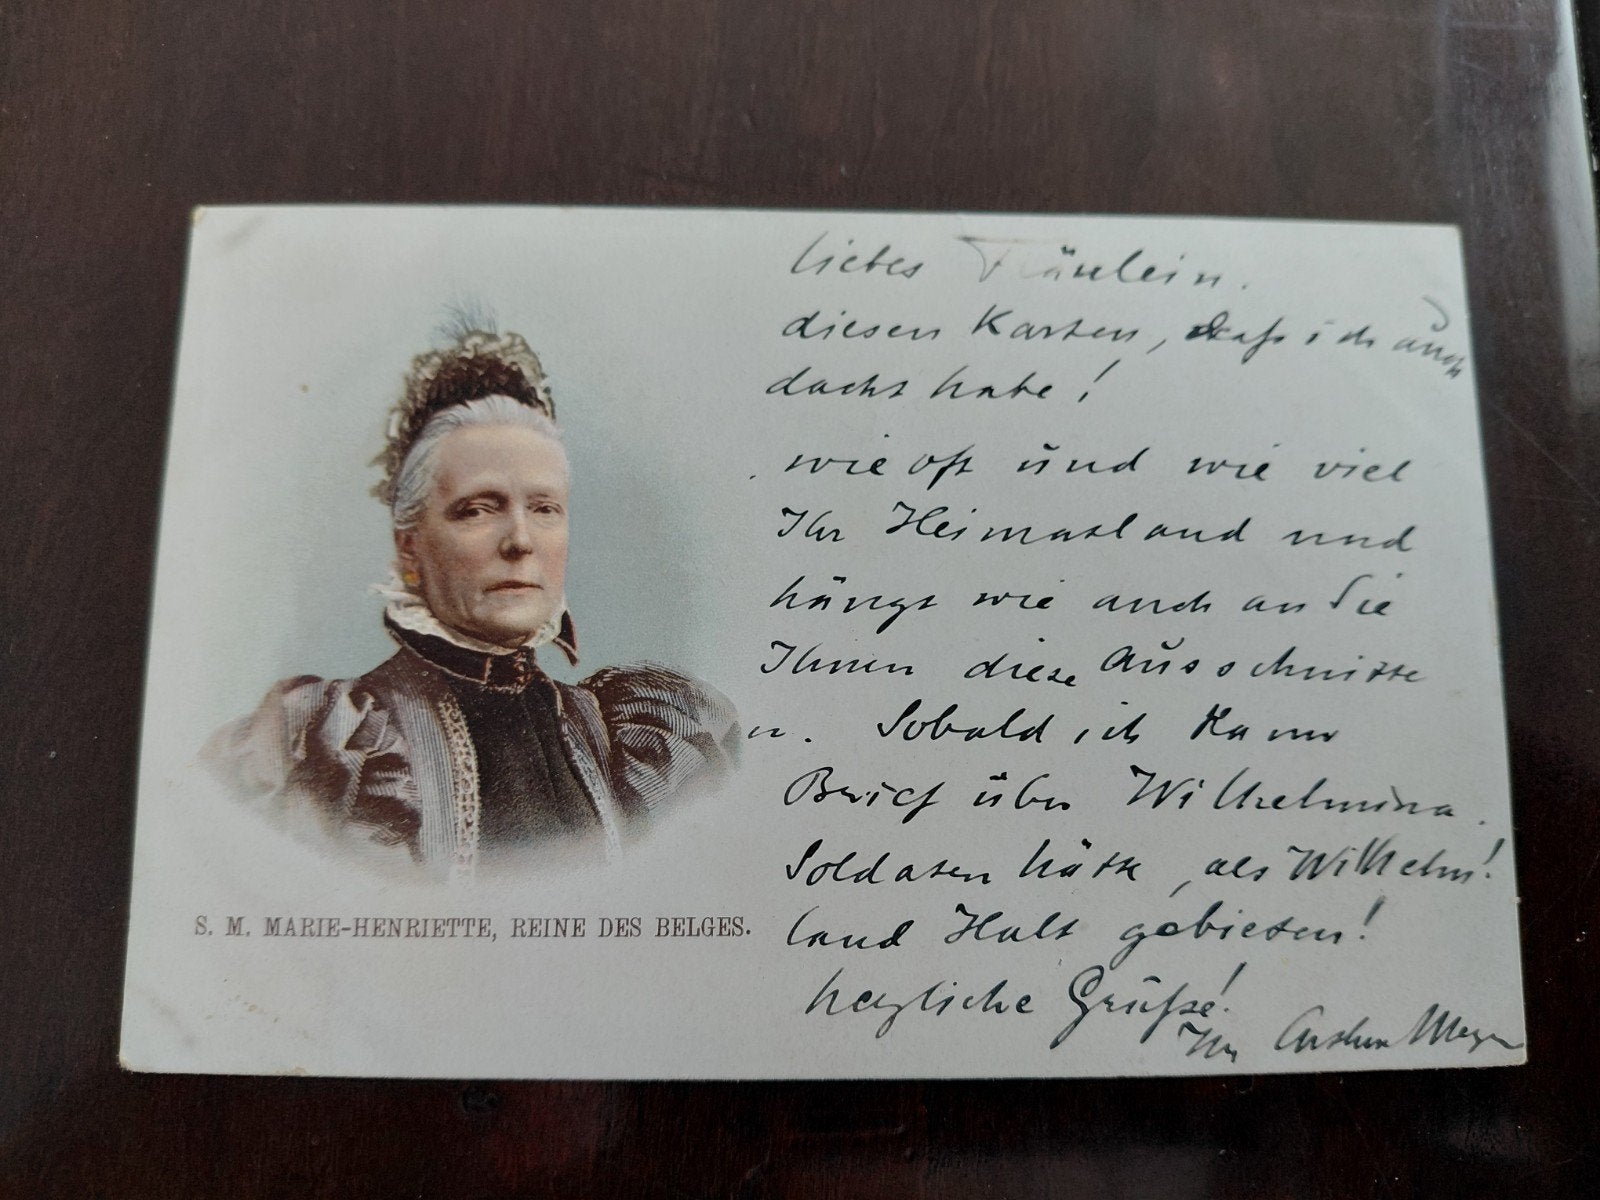 liebes Fräulein.
diesen Karten, daß ich auch
dacht habe!
wie oft und wie viel
Ihr Heimatland und
hängt wie auch an Sie
Ihnen diese Ausschnitte
n. Sobald ich kann
Brief über Wilhelmina.
Soldaten hätte, als Wilhelm!
land Halt gebieten!
herzliche Grüße!
Ihr Arthur Meyer
S. M. MARIE-HENRIETTE, REINE DES BELGES.